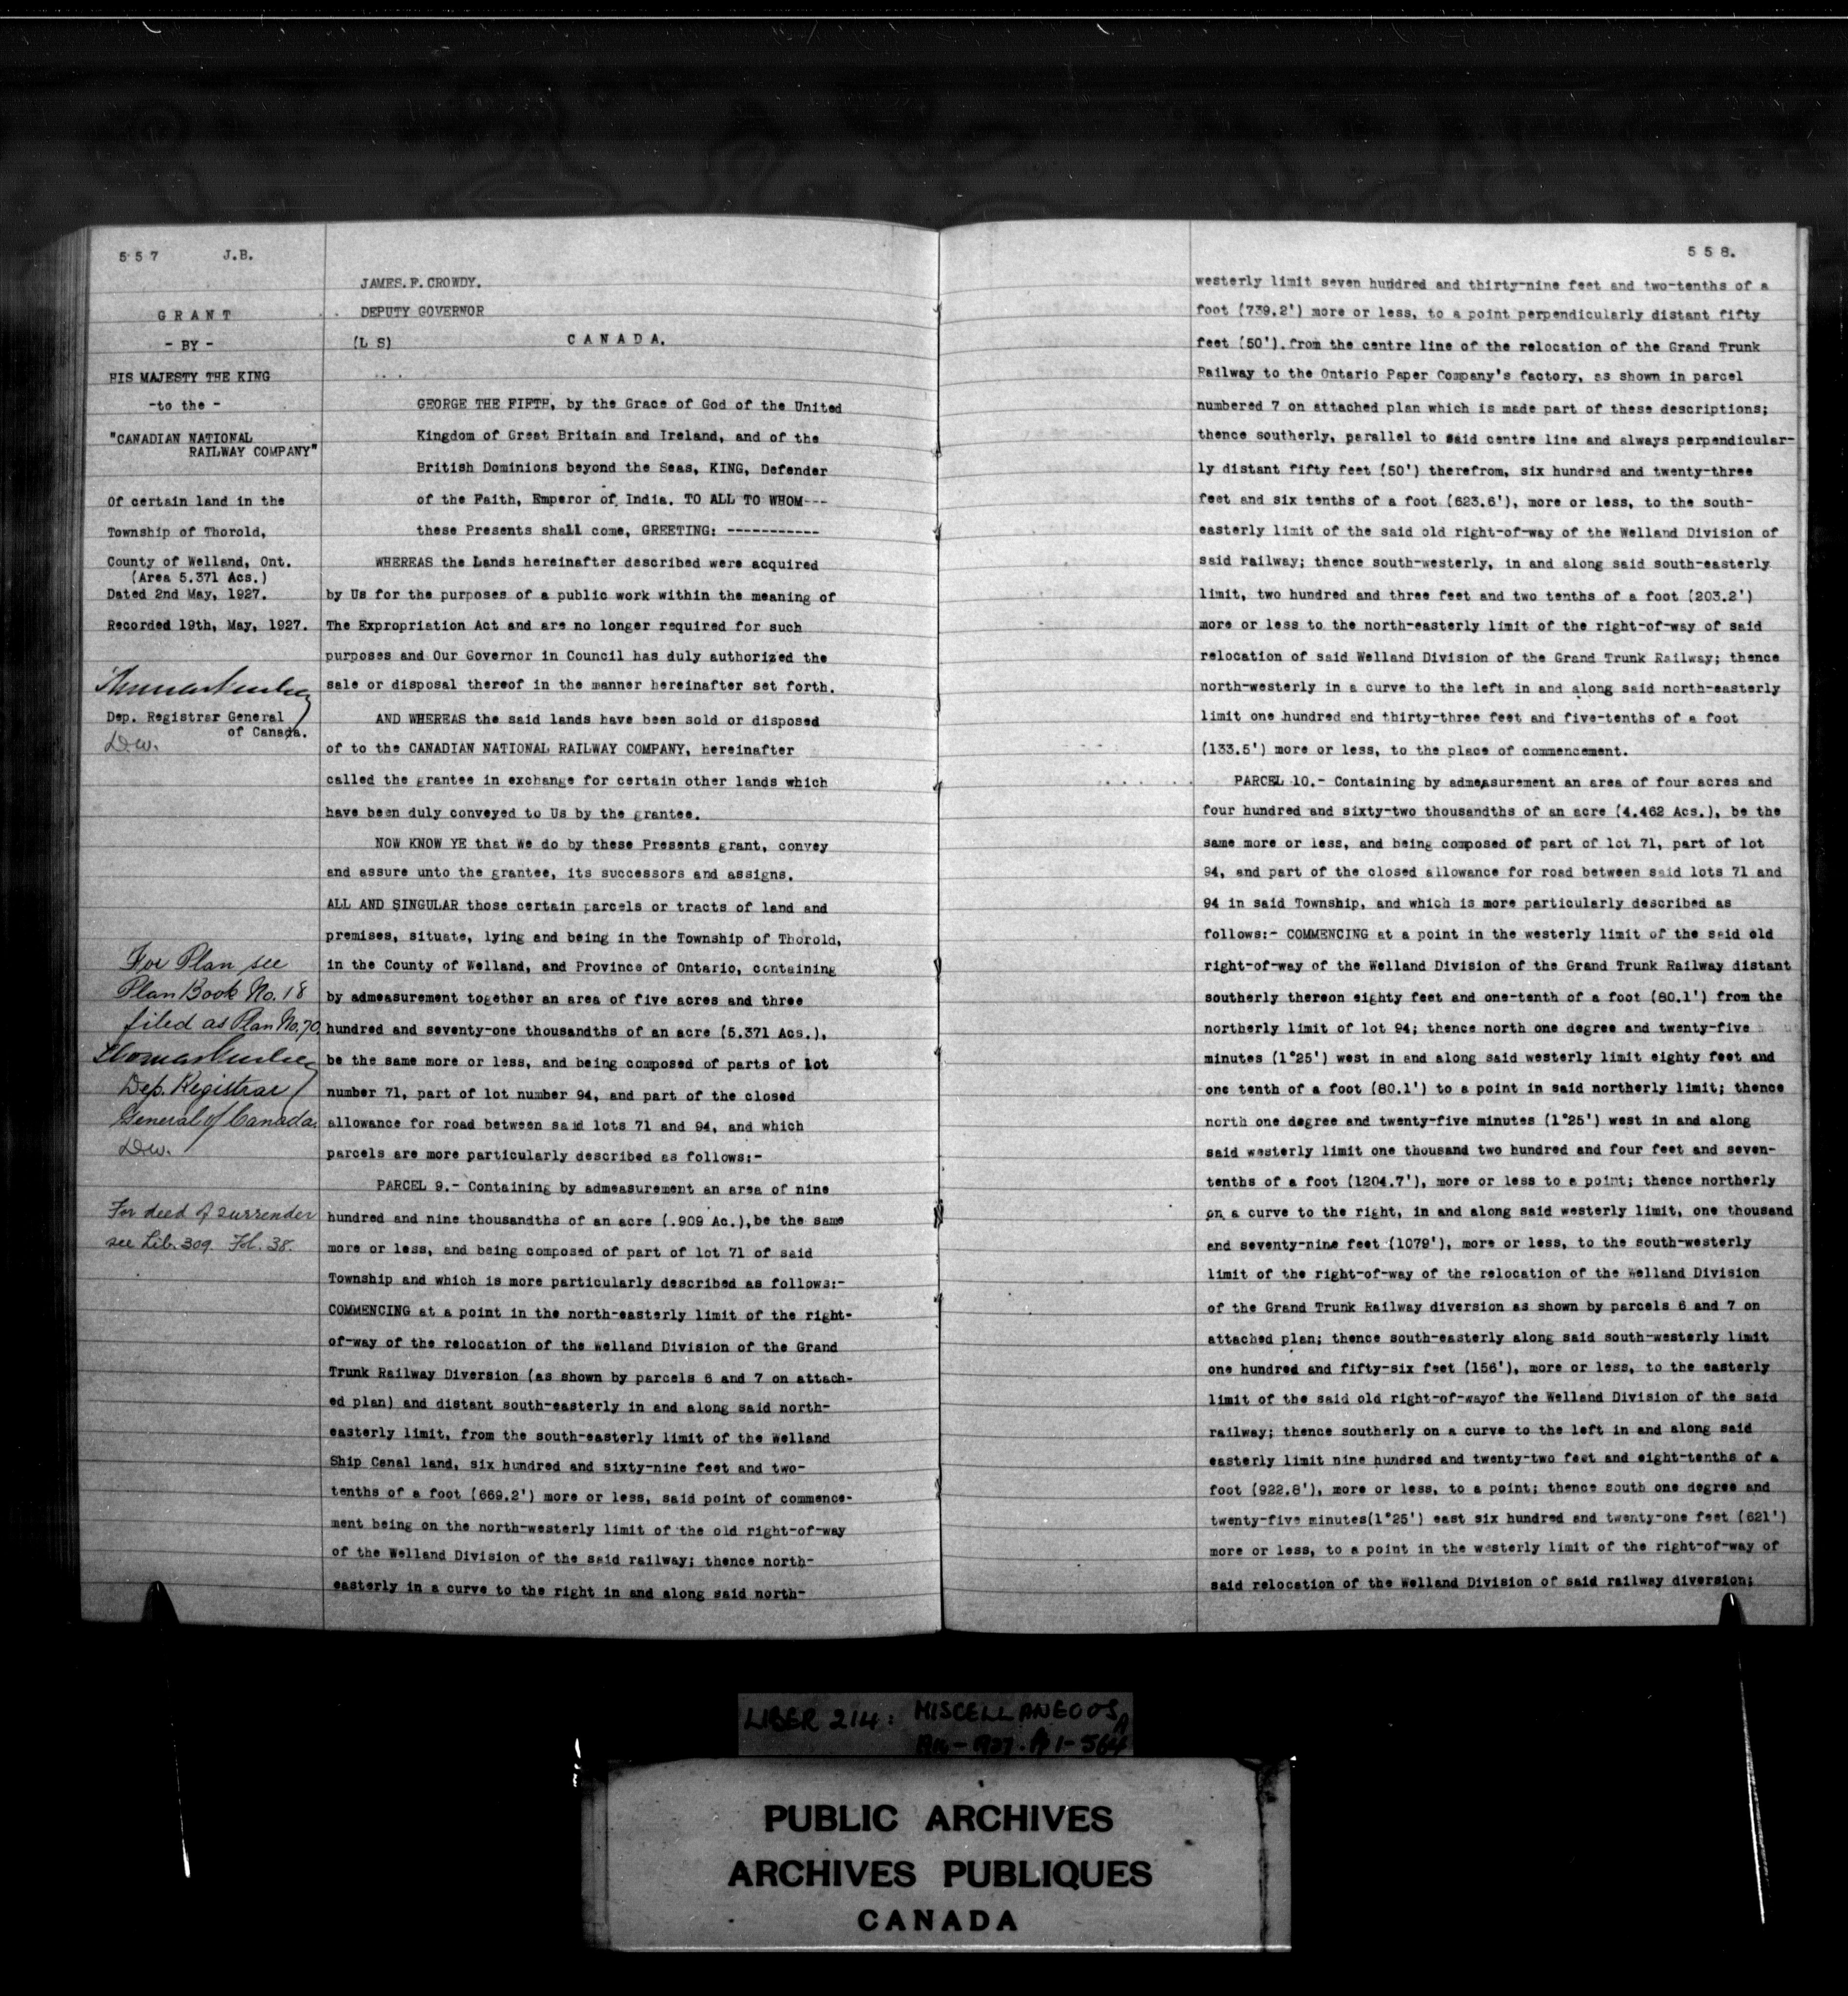 557 J.B.
GRANT
- BY -
HIS MAJESTY THE KING
-to the -
"CANADIAN NATIONAL
RAILWAY COMPANY"
Of certain land in the
Township of Thorold,
County of Welland, Ont.
(Area 5.371 Acs.)
Dated 2nd May, 1927.
Recorded 19th, May, 1927.
Dep. Registrar General
of Canada.
For Plan see
Plan Book No. 18
filed as Plan No. 70
Dep. Registrar
General of Canada.
For deed of surrender
see Lib. 309. Fol. 38.
JAMES.F.CROWDY.
DEPUTY GOVERNOR
(L S) CANADA.
GEORGE THE FIFTH, by the Grace of God of the United
Kingdom of Great Britain and Ireland, and of the
British Dominions beyond the Seas, KING, Defender
of the Faith, Emperor of India. TO ALL TO WHOM---
these Presents shall come, GREETING: -----------
WHEREAS the Lands hereinafter described were acquired
by Us for the purposes of a public work within the meaning of
The Expropriation Act and are no longer required for such
purposes and Our Governor in Council has duly authorized the
sale or disposal thereof in the manner hereinafter set forth.
AND WHEREAS the said lands have been sold or disposed
of to the CANADIAN NATIONAL RAILWAY COMPANY, hereinafter
called the grantee in exchange for certain other lands which
have been duly conveyed to Us by the grantee.
NOW KNOW YE that We do by these Presents grant, convey
and assure unto the grantee, its successors and assigns.
ALL AND SINGULAR those certain parcels or tracts of land and
premises, situate, lying and being in the Township of Thorold,
in the County of Welland, and Province of Ontario, containing
by admeasurement together an area of five acres and three
hundred and seventy-one thousandths of an acre (5.371 Acs.),
be the same more or less, and being composed of parts of lot
number 71, part of lot number 94, and part of the closed
allowance for road between said lots 71 and 94, and which
parcels are more particularly described as follows:-
PARCEL 9.- Containing by admeasurement an area of nine
hundred and nine thousandths of an acre (.909 Ac.),be the same
more or less, and being composed of part of lot 71 of said
Township and which is more particularly described as follows:-
COMMENCING at a point in the north-easterly limit of the right-
of-way of the relocation of the Welland Division of the Grand
Trunk Railway Diversion (as shown by parcels 6 and 7 on attach-
ed plan) and distant south-easterly in and along said north-
easterly limit, from the south-easterly limit of the Welland
Ship Canal land, six hundred and sixty-nine feet and two-
tenths of a foot (669.2') more or less, said point of commence-
ment being on the north-westerly limit of the old right-of-way
of the Welland Division of the said railway; thence north-
easterly in a curve to the right in and along said north-
558.
westerly limit seven hundred and thirty-nine feet and two-tenths of a
foot (739.2') more or less, to a point perpendicularly distant fifty
feet (50'). from the centre line of the relocation of the Grand Trunk
Railway to the Ontario Paper Company's factory, as shown in parcel
numbered 7 on attached plan which is made part of these descriptions;
thence southerly, parallel to said centre line and always perpendicular-
ly distant fifty feet (50') therefrom, six hundred and twenty-three
feet and six tenths of a foot (623.6'), more or less, to the south-
easterly limit of the said old right-of-way of the Welland Division of
said railway; thence south-westerly, in and along said south-easterly
limit, two hundred and three feet and two tenths of a foot (203.2')
more or less to the north-easterly limit of the right-of-way of said
relocation of said Welland Division of the Grand Trunk Railway; thence
north-westerly in a curve to the left in and along said north-easterly
limit one hundred and thirty-three feet and five-tenths of a foot
(133.5') more or less, to the place of commencement.
PARCEL 10.- Containing by admeasurement an area of four acres and
four hundred and sixty-two thousandths of an acre (4.462 Acs.), be the
same more or less, and being composed of part of lot 71, part of lot
94, and part of the closed allowance for road between said lots 71 and
94 in said Township, and which is more particularly described as
follows:- COMMENCING at a point in the westerly limit of the said old
right-of-way of the Welland Division of the Grand Trunk Railway distant
southerly thereon eighty feet and one-tenth of a foot (80.1') from the
northerly limit of lot 94; thence north one degree and twenty-five
minutes (1°25') west in and along said westerly limit eighty feet and
one tenth of a foot (80.1') to a point in said northerly limit; thence
north one degree and twenty-five minutes (1°25') west in and along
said westerly limit one thousand two hundred and four feet and seven-
tenths of a foot (1204.7'), more or less to a point; thence northerly
on a curve to the right, in and along said westerly limit, one thousand
and seventy-nine feet (1079'), more or less, to the south-westerly
limit of the right-of-way of the relocation of the Welland Division
of the Grand Trunk Railway diversion as shown by parcels 6 and 7 on
attached plan; thence south-easterly along said south-westerly limit
one hundred and fifty-six feet (156'), more or less, to the easterly
limit of the said old right-of-wayof the Welland Division of the said
railway; thence southerly on a curve to the left in and along said
easterly limit nine hundred and twenty-two feet and eight-tenths of a
foot (922.8'), more or less, to a point; thence south one degree and
twenty-five minutes(1°25') east six hundred and twenty-one feet (621')
more or less, to a point in the westerly limit of the right-of-way of
said relocation of the Welland Division of said railway diversion;
LIBER 214: MISCELLANEOUS
PUBLIC ARCHIVES
ARCHIVES PUBLIQUES
CANADA